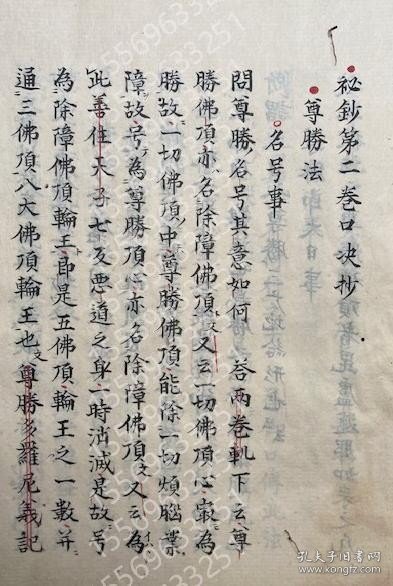 祕鈔第二巻口決抄
尊勝法
名号事
問尊勝名号其意如何 荅兩巻軌下云尊
勝佛頂亦名除障佛頂文又云一切佛頂心㝡為
勝故一切佛頂中尊勝佛頂能除一切煩腦業
障故号為尊勝頂心亦名除障佛頂文又云為
此善住天子七反悪道之身一時消滅是故号
為除障佛頂輪王即是五佛頂輪王之一數并
通三佛頂八大佛頂輪王也文尊勝多羅尼義記
5569633251
孔夫子旧书网